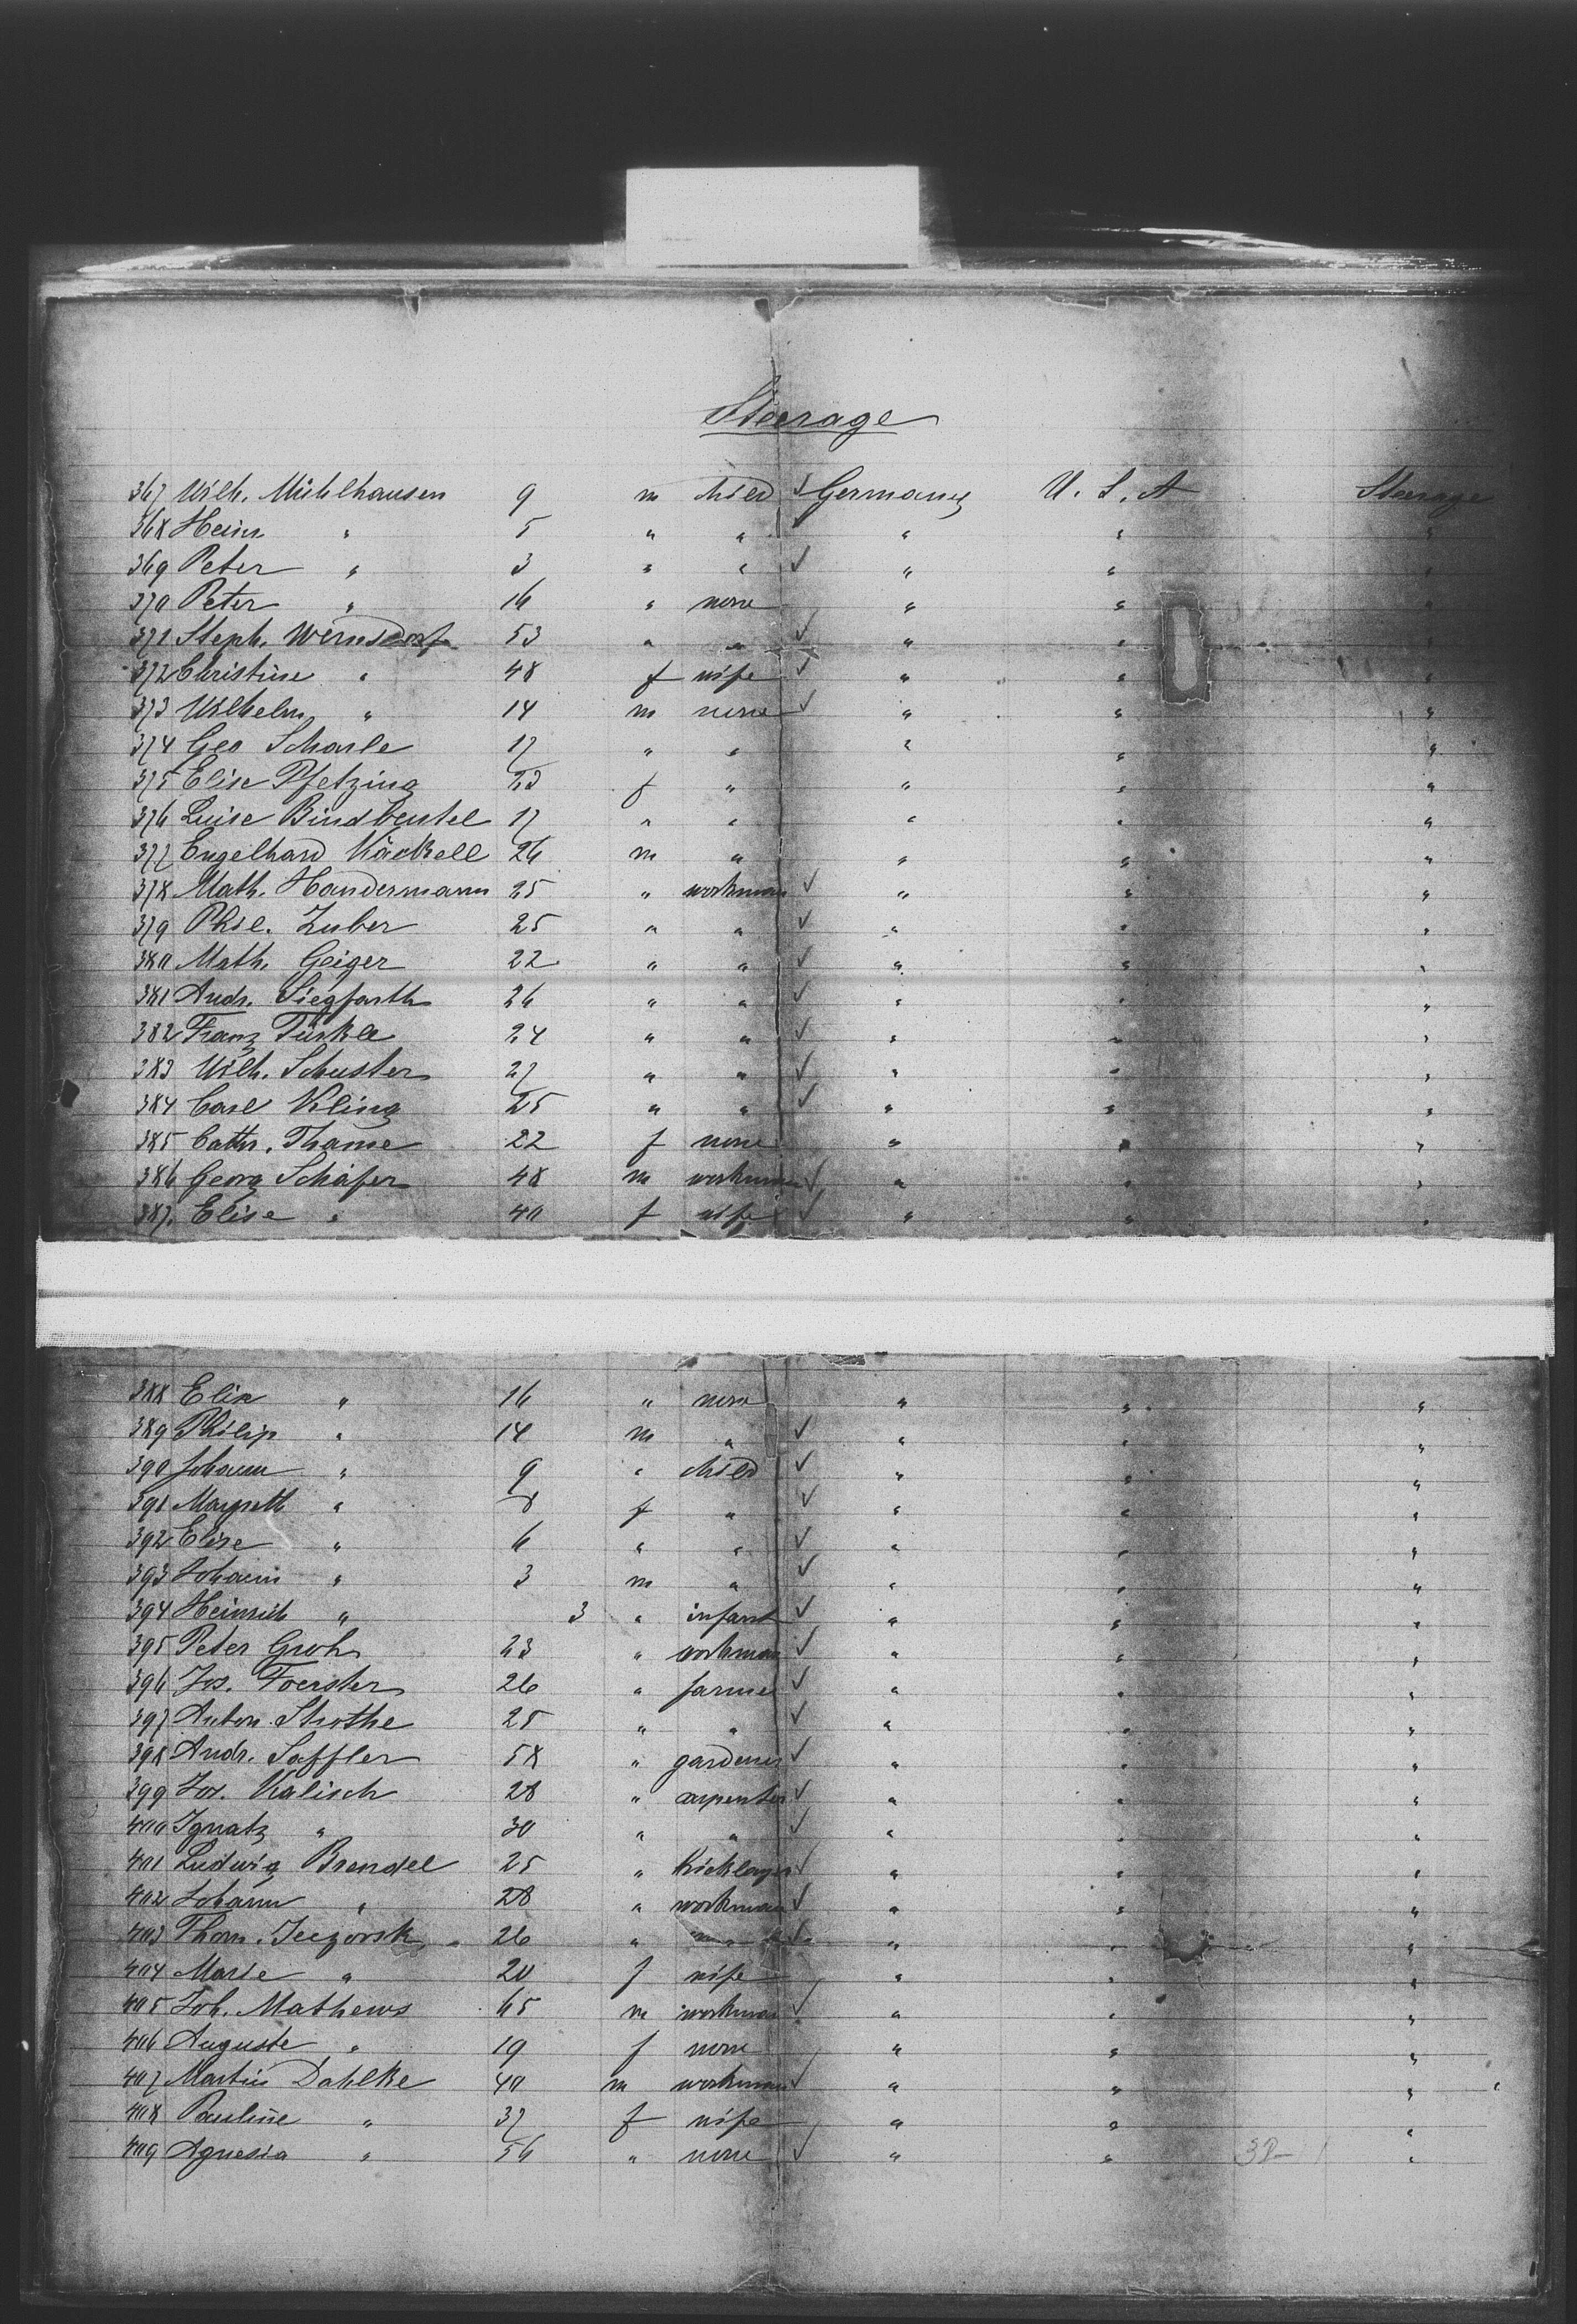 Steerage
367 Wilh. Mühlhausen 9 m child ✓ Germany U. S. A Steerage
368 Heinr " 5 " " ✓ " " "
369 Peter " 3 " " ✓ " " "
370 Peter " 16 " none " " "
371 Steph. Wernsdorf 53 " " ✓ " " "
372 Christine " 48 f wife ✓ " " "
373 Wilhelm " 14 m none ✓ " " "
374 Geo Scharle 17 " " " " "
375 Elise Pfetzing 23 f " " " "
376 Luise Bindbeutel 17 " " " " "
377 Engelhard Käckell 26 m " " " "
378 Math. Handermann 25 " workman ✓ " " "
379 Phil. Zuber 25 " " ✓ " " "
380 Math. Geiger 22 " " ✓ " " "
381 Andr. Siegfarth 26 " " ✓ " " "
382 Franz Türkle 24 " " ✓ " " "
383 Wilh. Schuster 27 " " ✓ " " "
384 Carl Kling 25 " " ✓ " " "
385 Cathr. Thame 22 f none " " "
386 Georg Schäfer 48 m workman ✓ " " "
387. Elise " 40 f wife ✓ " " "
388 Elise " 16 " none " " "
389 Philip " 14 m " ✓ " " "
390 Johann " 9 " child ✓ " " "
391 Margreth " 8 f " ✓ " " "
392 Elise " 6 " " ✓ " " "
393 Johann " 3 m " ✓ " " "
394 Heinrich " 3 " infant ✓ " " "
395 Peter Groh 23 " workman ✓ " " "
396 Jos. Foerster 26 " farmer ✓ " " "
397 Anton Strothe 25 " " ✓ " " "
398 Andr. Saffler 58 " gardener ✓ " " "
399 Jos. Kalisch 28 " carpenter ✓ " " "
400 Ignatz " 30 " " ✓ " " "
401 Ludwig Brendel 25 " bricklayer ✓ " " "
402 Johann " 28 " workman ✓ " " "
403 Thom. 26 " " ✓ " " "
404 Marie " 20 f wife " " "
405 Joh. Mathews 65 m workman ✓ " " "
406 Auguste " 19 f none " " "
407 Martin Dahlke 40 m workman ✓ " " "
408 Pauline " 37 f wife " " "
409 Agnesia " 56 " none ✓ " " 38 "